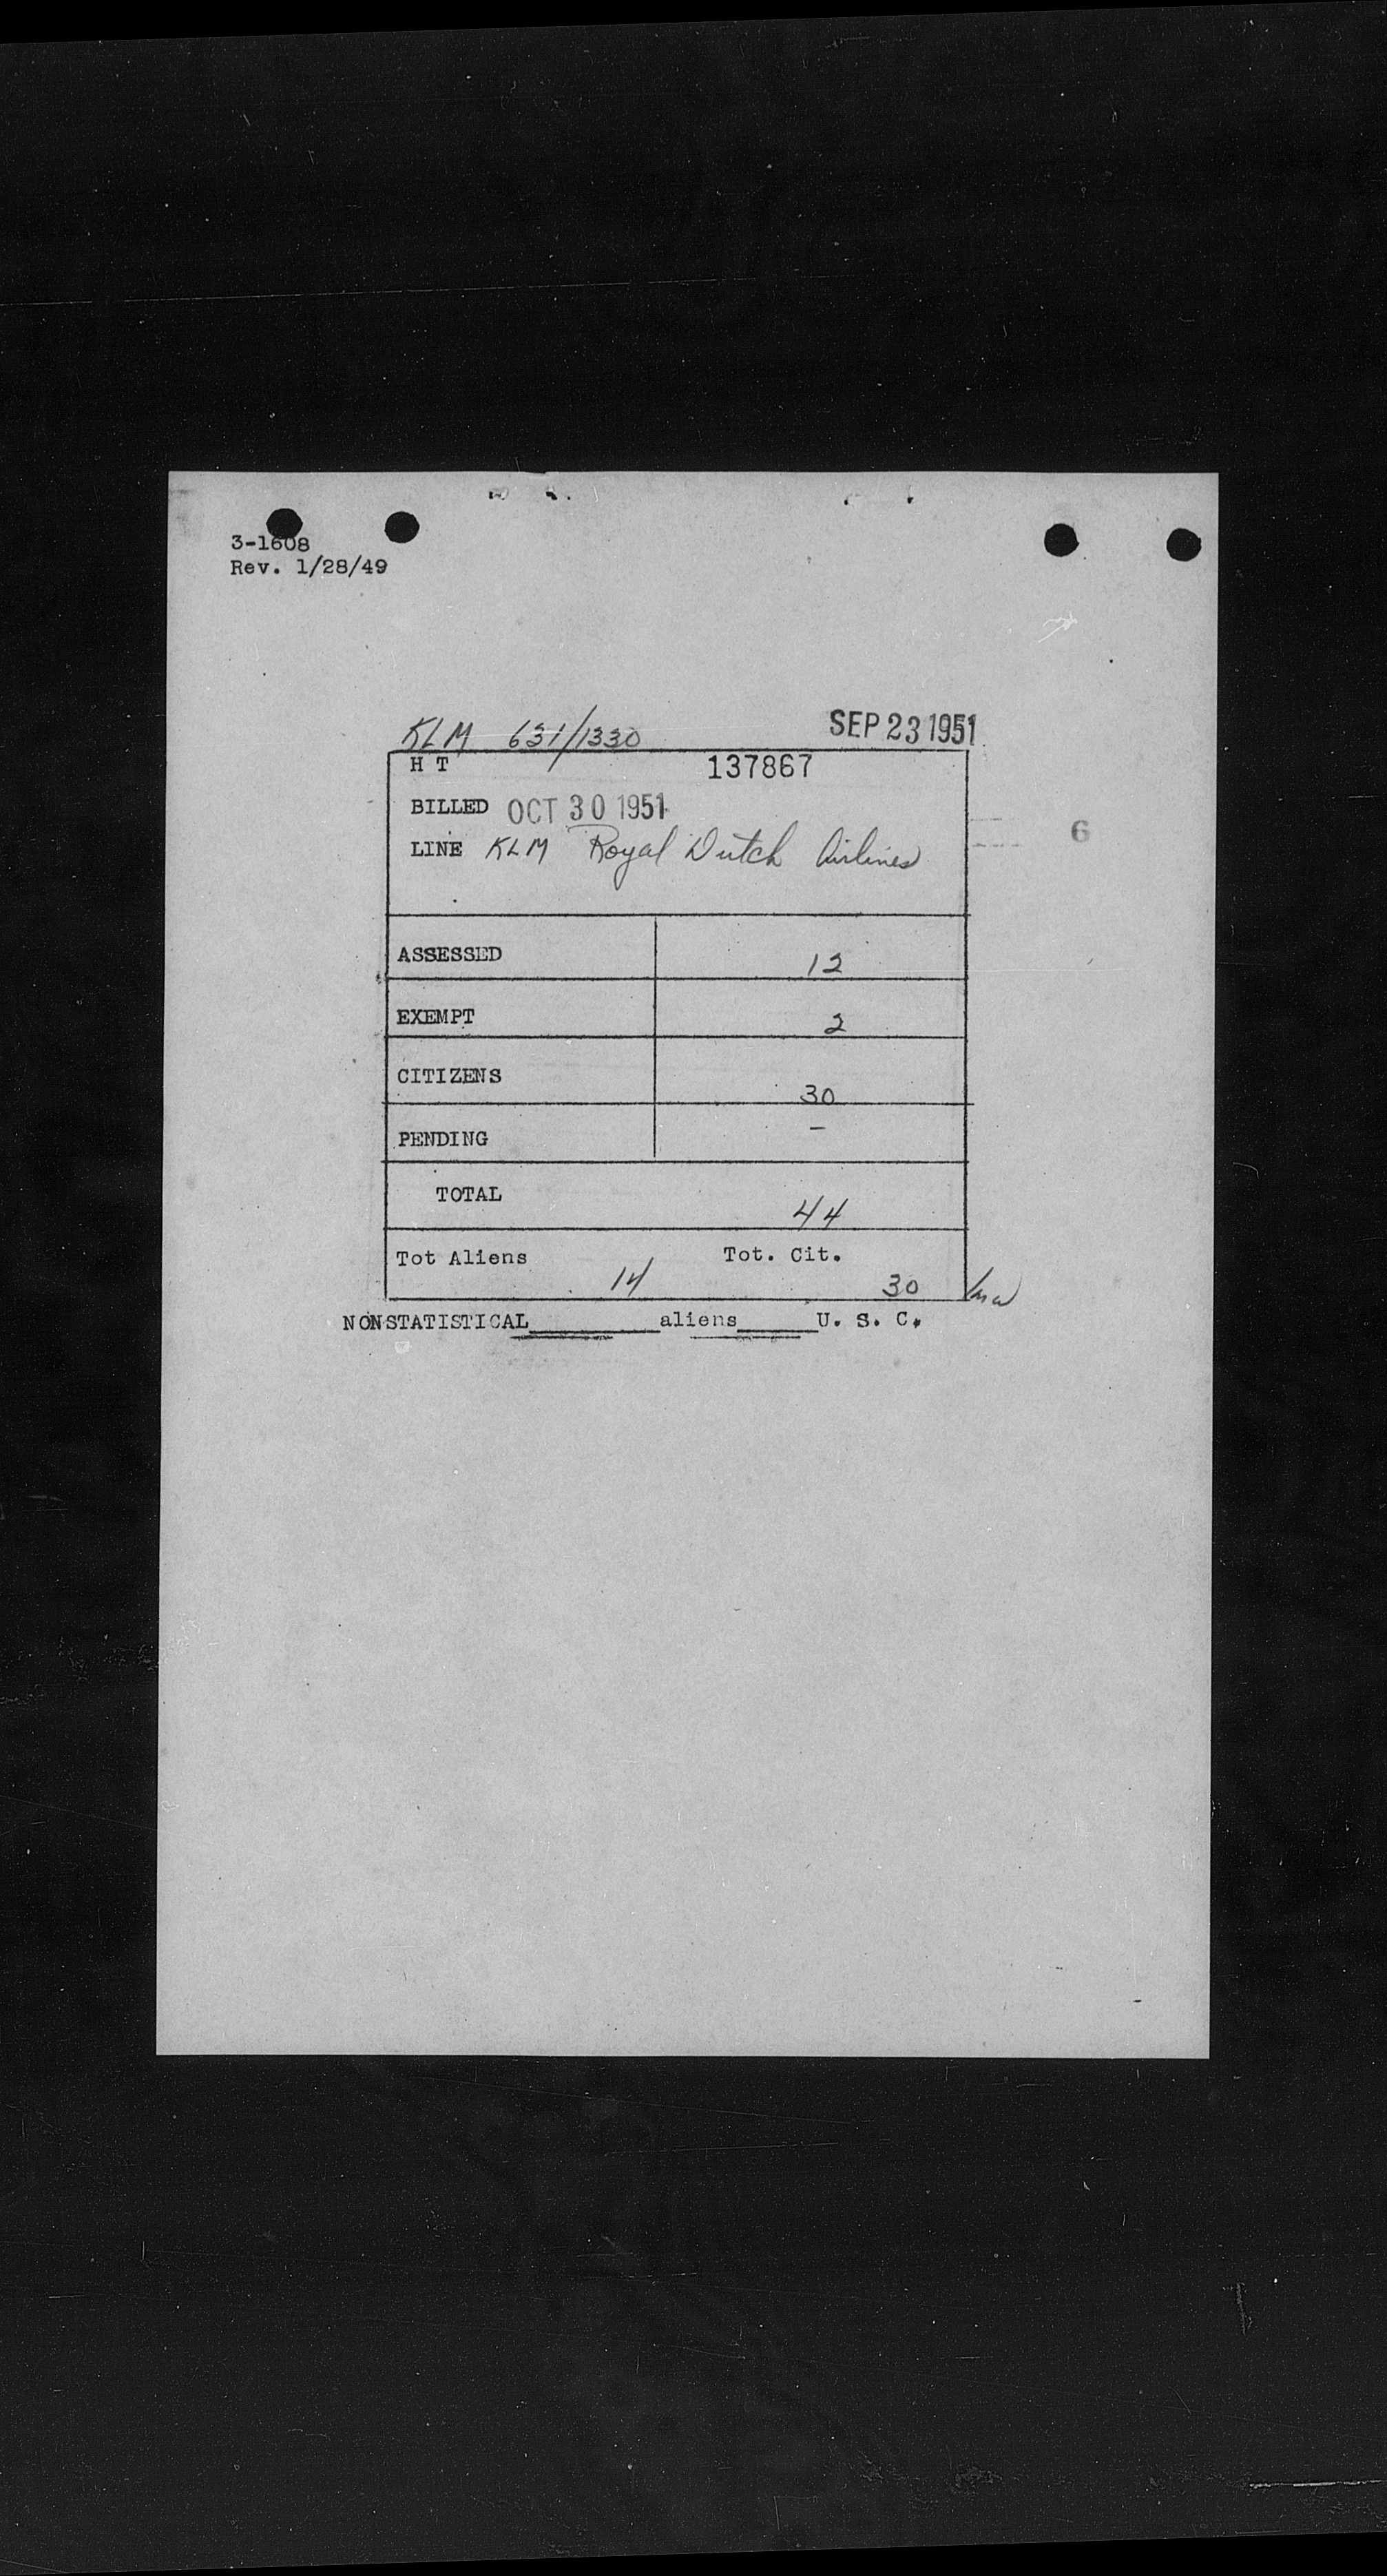 3-1608
Rev. 1/28/49
KLM 631/1330 SEP 23 1951
H T 137867
BILLED OCT 30 1951
LINE KLM Royal Dutch Airlines
6
ASSESSED 12
EXEMPT 2
CITIZENS 30
PENDING –
TOTAL 44
Tot Aliens 14 Tot. Cit. 30
NONSTATISTICAL______aliens____U. S. C.